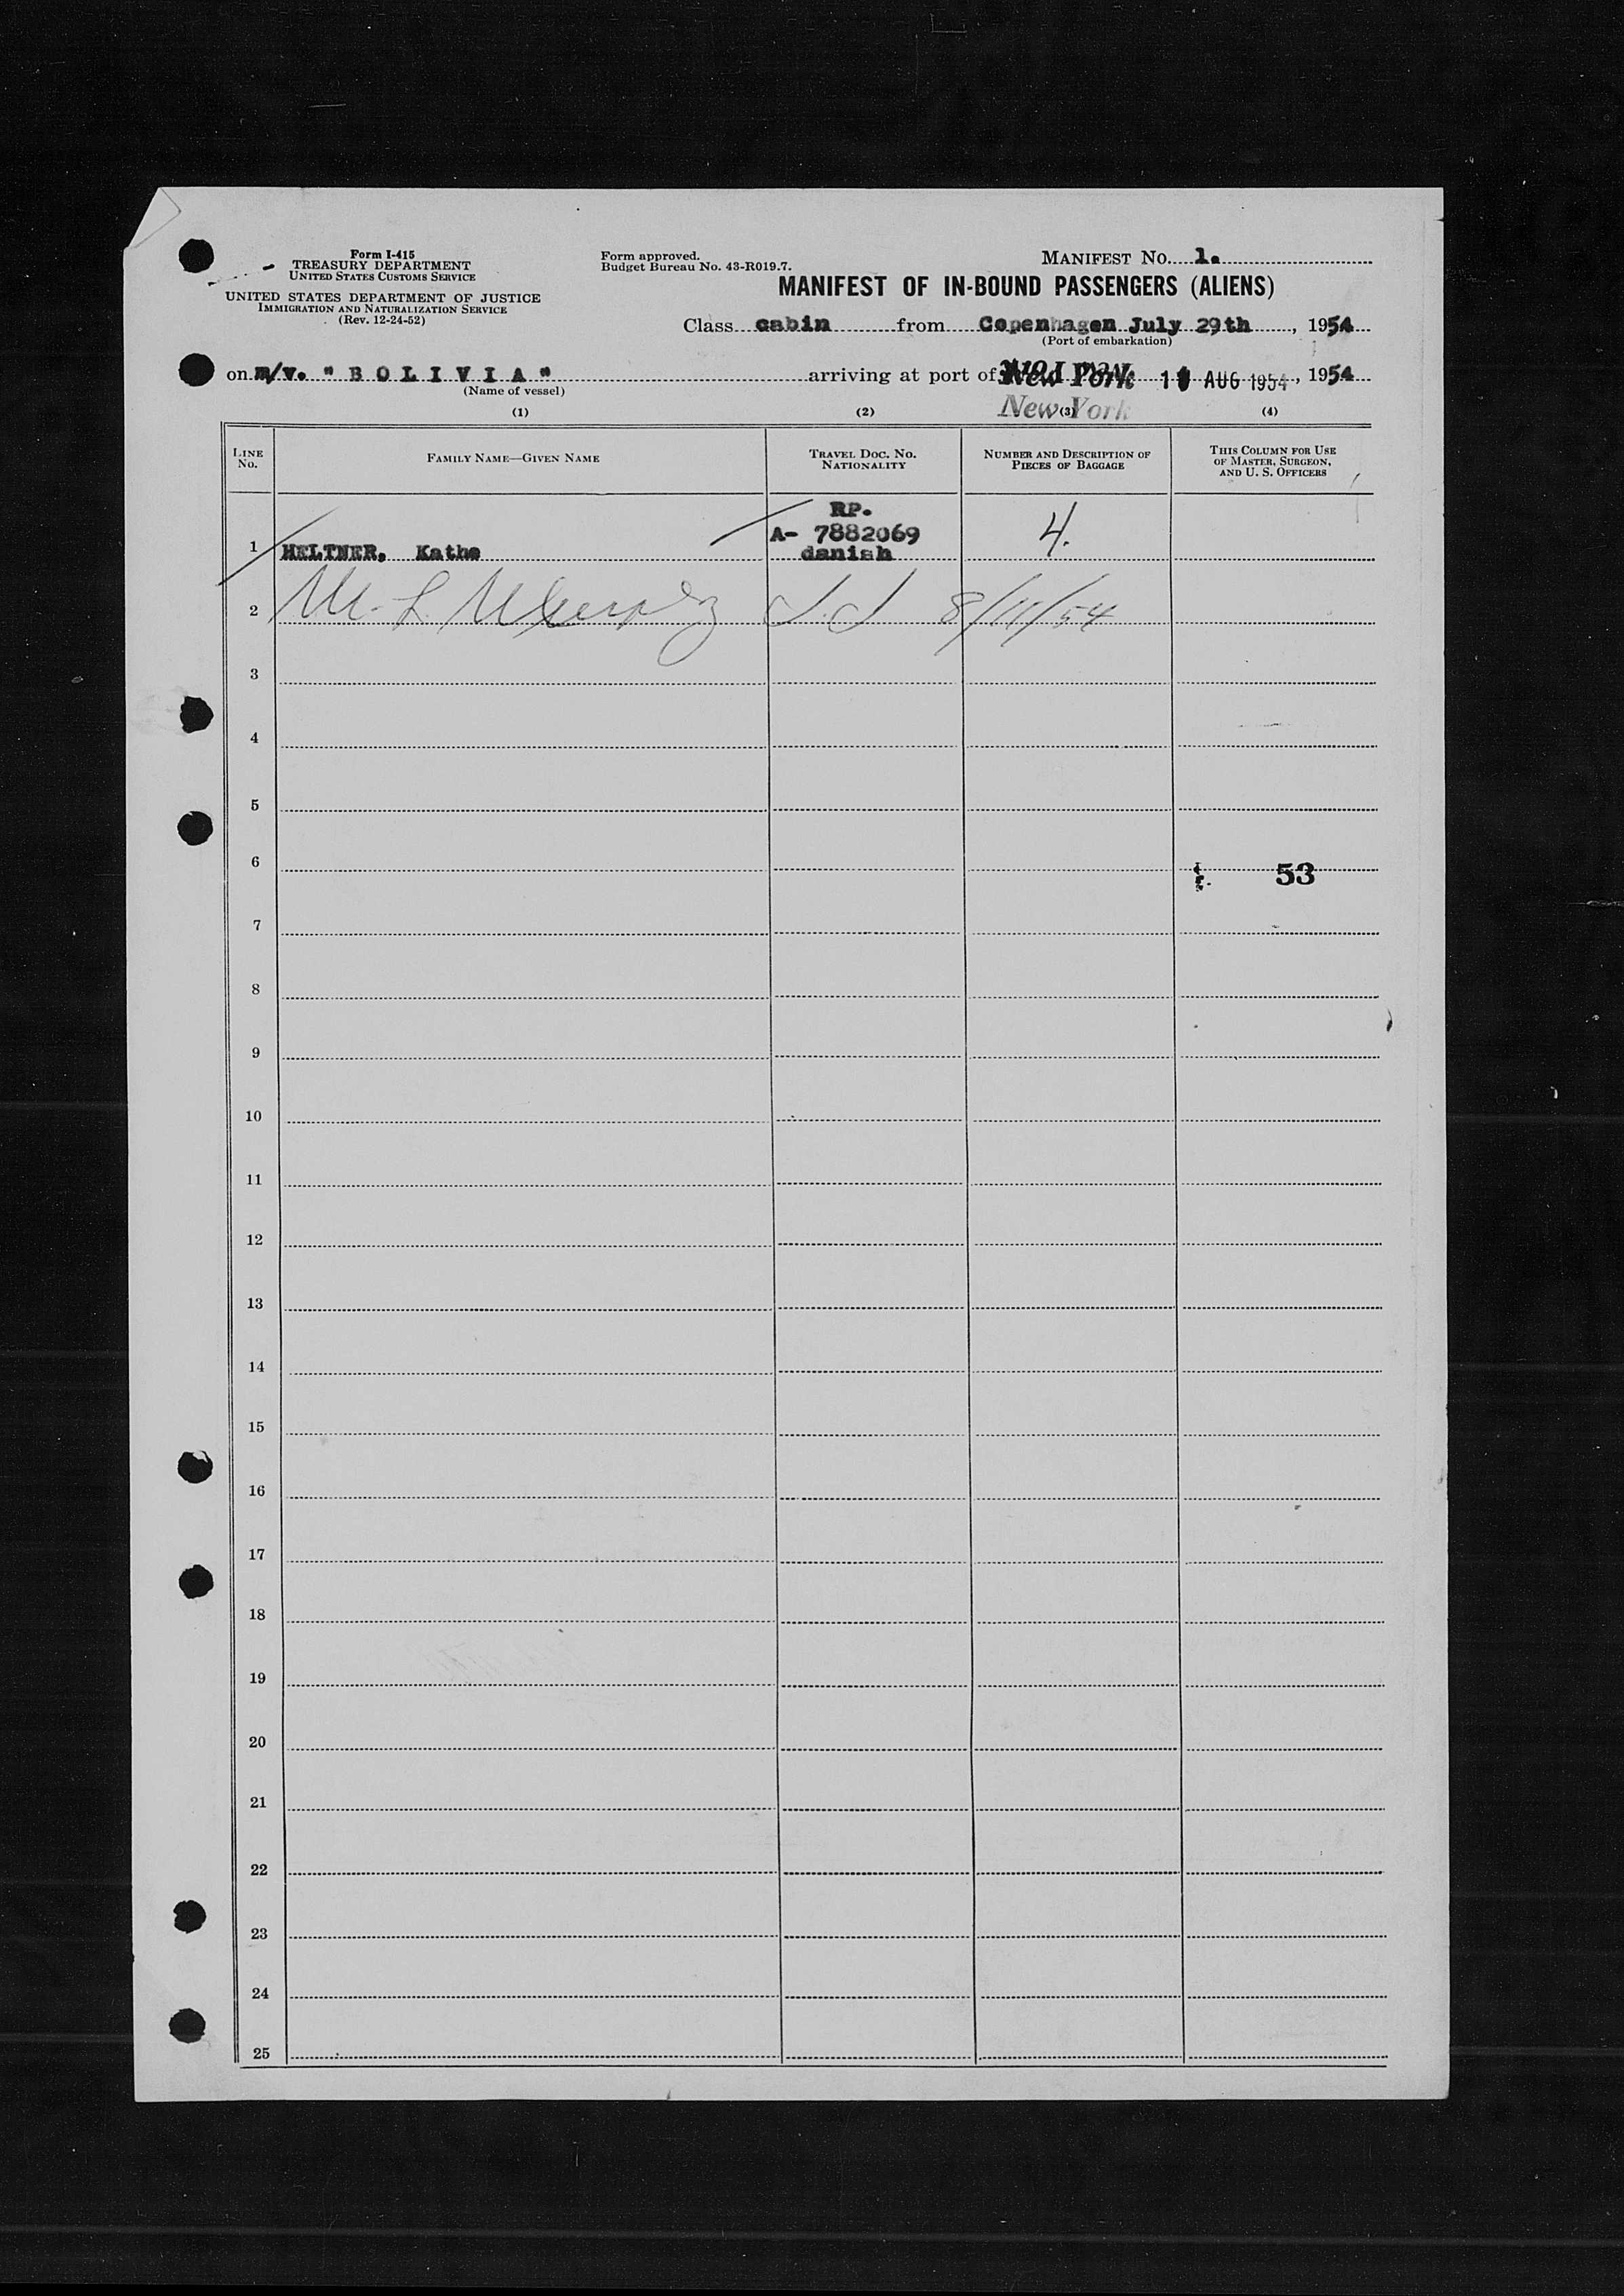 Form I-415
TREASURY DEPARTMENT
UNITED STATES CUSTOMS SERVICE
UNITED STATES DEPARTMENT OF JUSTICE
IMMIGRATION AND NATURALIZATION SERVICE
(Rev. 12-24-52)
Form approved.
Budget Bureau No. 43-R019.7.
MANIFEST NO. 1.
MANIFEST OF IN-BOUND PASSENGERS (ALIENS)
Class cabin from Copenhagen July 29th, 1954
(Port of embarkation)
on m/v. " B O L I V I A " arriving at port of New York AUG 1954, 1954
(Name of vessel)
New York
(1) (2) (3) (4)
LINE NO.
FAMILY NAME—GIVEN NAME
TRAVEL DOC. NO.
NATIONALITY
NUMBER AND DESCRIPTION OF
PIECES OF BAGGAGE
THIS COLUMN FOR USE
OF MASTER, SURGEON,
AND U. S. OFFICERS
RP.
A- 7882069
1 HELTNER, Kathe danish 4.
2 8/11/54
3
4
5
6 53
7
8
9
10
11
12
13
14
15
16
17
18
19
20
21
22
23
24
25